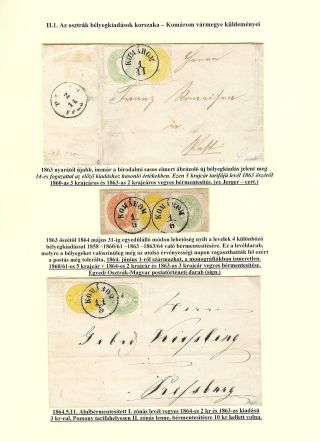 II.1. Az osztrák bélyegkiadások korszaka – Komárom vármegye küldeményei
KOMÁROM
4/11
Franz
in
Pest
1863 nyarától újabb, immár a birodalmi sasos címert ábrázoló új bélyegkiadás jelent meg
14-es fogazattal az előző kiadáshoz hasonló értékekben. Ezen 5 krajcár tarifájú levél 1863 őszéről
1860-as 3 krajcáros és 1863-as 2 krajcáros vegyes bérmentesítés, (ex Jerger – cert.)
KOMÁROM
KOMÁROM
1863 őszétől 1864 május 31-ig egyedülálló módon lehetőség nyílt a levelek 4 különböző
bélyegkiadással 1858 –1860/61 –1863 –1863/64 való bérmentesítésére. Ez a levéldarab,
melyre a bélyegeket valószínűleg még az utolsó érvényességi napon ragaszthatták fel ezért
a postás még tolerálta. 1864. június 3-ról származhat, a monográfiákban ismeretlen.
1860/61-es 5 krajcár + 1864-es 2 krajcár és 1863-as 3 krajcár vegyes bérmentesítése.
Egyedi Osztrák-Magyar postatörténeti darab (sign.)
KOMÁROM
Pressburg
1864.5.11. Alulbérmentesített I. zónás levél vegyes 1864-es 2 kr és 1863-as kiadású
3 kr-ral. Pozsony tarifahelyesen II. zónás lenne, bérmentesítésre 10 kr kellett volna.